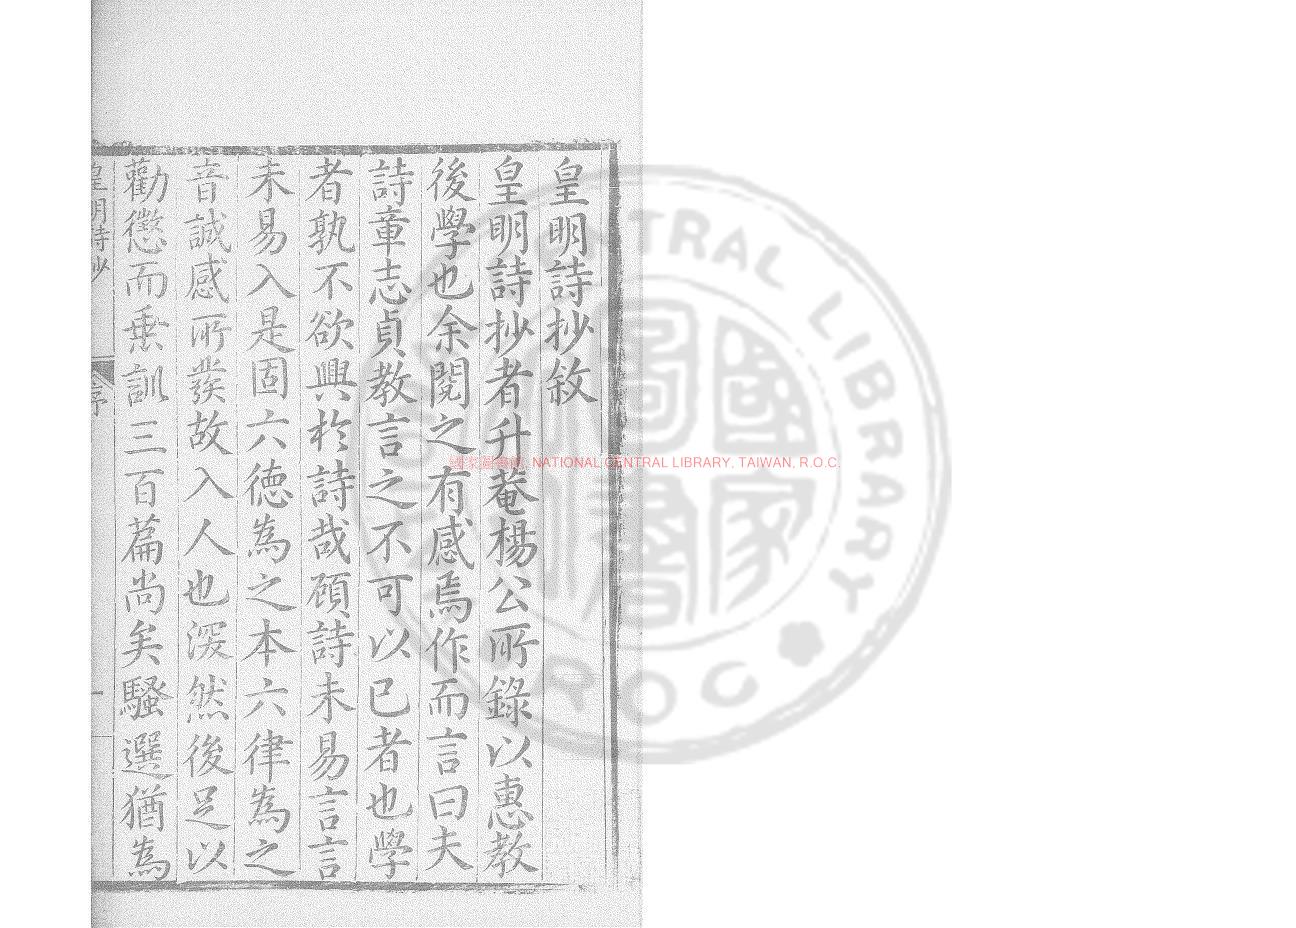 皇明詩抄敘
皇明詩抄者升菴楊公所錄以惠教
後學也余閱之有感焉作而言曰夫
詩章志貞教言之不可以已者也學
者孰不欲興於詩哉顧詩未易言言
未易入是固六德為之本六律為之
音誠感所發故入人也深然後足以
勸懲而垂訓三百篇尚矣騷選猶為
皇明詩抄 序 一
國家圖書館, NATIONAL CENTRAL LIBRARY, TAIWAN, R.O.C.
CENTRAL LIBRARY
ROC
國家圖書館